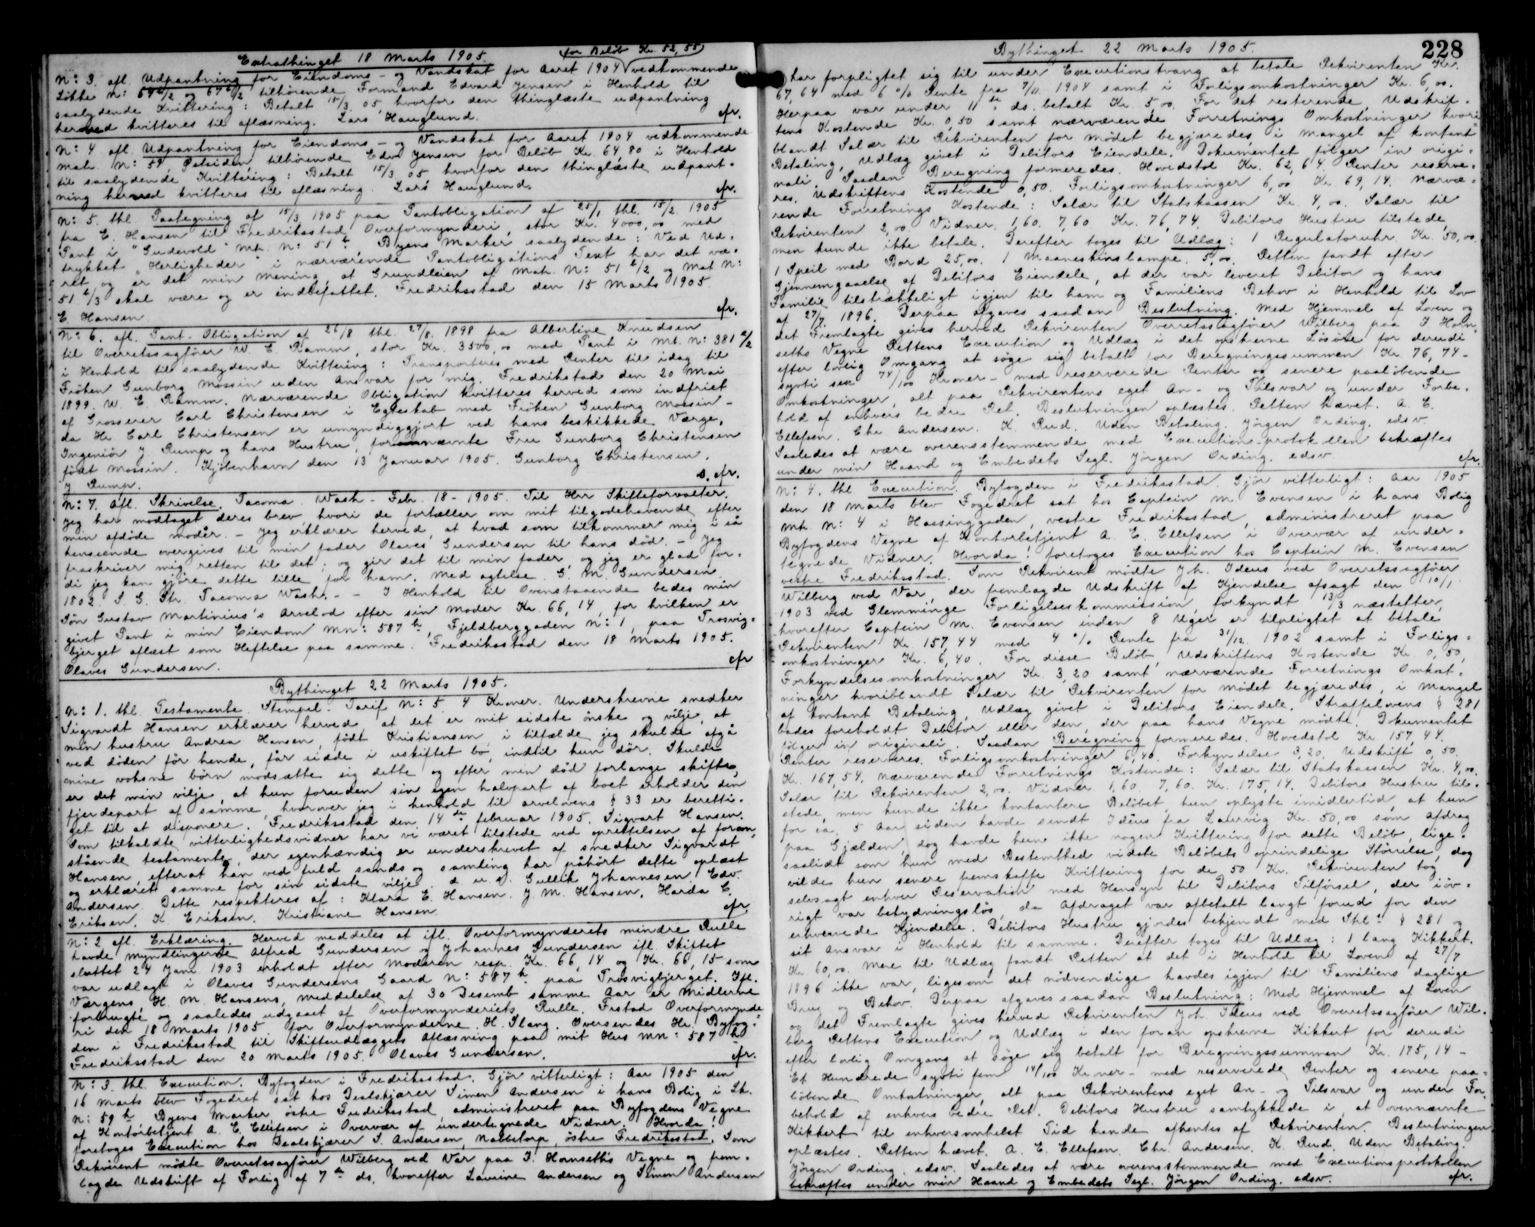 Extrathinget 18 Marts 1905. for Beløb Kr. 52,55)
N: 3. afl. Udpantning for Eiendoms- og Vandskat for Aaret 1904 vedkommende
Løkke N: 67 a/2 og 67 b/2 tilhörende Formand Edvard Jensen i Henhold til
saalydende Kvittering: Betalt 15/3 05 hvorfor den thinglæste udpantning
herved kvitteres til aflæsning. Lars Hauglund. cfr.
N: 4 afl. Udpantning for Eiendoms- og Vandskat for Aaret 1904 vedkommende
mat. N: 54 tilhörende Edv. Jensen for Beløb Kr. 64 80 i Henhold
til saalydende Kvittering: Betalt 15/3 05 hvorfor den thinglæste udpant-
ning herved kvitteres til aflæsning. Lars Hauglund. cfr.
N: 5. thl. Paategning af 15/3 1905 paa Pantobligation af 25/1 thl. 15/2 1905
fra E. Hansen til Fredriksstad Overformynderi, stor Kr. 4000,00 med
Pant i "Gudevold" Mt. N: 51 b. Byens Marker saalydende: Ved Ud-
trykket "Herligheder" i nærværende Pantobligations Text har det væ-
ret og er det min mening at Grundleien af Mat. N: 51 b/2 og Mat N:
51 b/3 skal være og er indbefattet. Fredriksstad den 15 Marts 1905.
E. Hansen. cfr.
N: 6. afl. Pant-Obligation af 26/8 thl. 27/8. 1898 fra Albertine Knudsen
til Overretssagfører W. E. Ramm, stor Kr. 3500,00 med Pant i Mt. N: 381 a/2
i Henhold til saalydende Kvittering: Transporteres med Renter til idag til
Frøken Gunborg Mossin uden Ansvar for mig. Fredrikstad den 20 Mai
1899. W. E. Ramm. Nærværende Obligation kvitteres herved som indfriet
af Grosserer Carl Christensen i Egteskab med Frøken Gunborg Mossin -
da Hr. Carl Christensen er umyndiggjort ved hans beskikkede Værge,
Ingeniør J Rump og hans Hustru, fornævnte Fru Gunborg Christensen
født Mossin. Kjøbenhavn den 13 Januar 1905. Gunborg Christensen.
J Rump. D. cfr.
N: 7. Afl. Skrivelse. Tacoma. Wash - Feb. 18 - 1905. Til Herr Skifteforvalter.
Jeg har modtaget deres brev hvori de fortæller om mit tilgodehavende efter
min afdøde moder. - Jeg erklærer herved, at hvad som tilkommer mig i så
henseende overgives til min fader Olaves Gundersen til hans død. - Jeg
fraskriver mig retten til det; og gir det til min fader, og jeg er glad for-
di jeg kan gjøre dette lille for ham. Med agtelse. G. M. Gundersen
1802 S. G. Str. Tacoma Wash. - - I Henhold til Ovenstaaende bedes min
Søn Gustav Martinius's Arvelod efter sin Moder Kr. 66,14, for hvilken er
givet Pant i min Eiendom Mn: 587 b, Fjeldberggaden N: 1, paa Trosvig-
bjerget aflæst som Heftelse paa samme. Fredriksstad den 18 Marts 1905.
Olaves Gundersen. cfr
Bythinget 22 Marts 1905.
N: 1. thl. Testamente. Stempel. Tarif N: 5. 4 Kroner. Underskrevne snedker
Sigvardt Hansen erklærer herved at det er mit sidste ønske og vilje, at
min hustru Andrea Hansen, født Kristiansen i tilfælde jeg skulde afgå
ved døden før hende, får sidde i uskiftet bo, indtil hun dør. Skulde
mine voksne börn modsætte sig dette og efter min död forlange skifte,
er det min vilje at hun foruden sin egen halvpart af boet erholder den
fjerdepart af samme hvorover jeg i henhold til arvelovens § 33 er beretti-
get til at disponere. Fredriksstad den 14 de februar 1905. Sigvart Hansen.
Som tilkaldte vitterlighedsvidner har vi været tilstede ved oprettelsen af foran-
stående testamente, der egenhændig er underskrevet af snedker Sigvardt
Hansen, efterat han ved fuld sands og samling har påhört dette oplæst
og erklæret samme for sin sidste vilje. d. u. s. Gullik Johannesen Edv.
Andersen. Dette respekteres af: Klara E. Hansen. J. M. Hansen. Harda E.
Eriksen. K. Eriksen. Kristiane Hansen. cfr.
N: 2 afl. Erklæring. Herved meddeles at ifl. Overformynderets mindre Rulle
havde myndlingerne Alfred Gundersen og Johannes Gundersen ifl. Skiftet
sluttet 24 Jan. 1903 erholdt efter Moderen resp. Kr. 66,14 og Kr. 66,15 som
var udlagt i Olaves Gundersens Gaard N: 587 b paa Trosvigbjerget. Ifl.
Værgens H. M. Hansens, meddelelse af 30 Desemb. samme Aar er Midlerne
forbrugte og saaledes udgaaet af Overformynderiets Rulle. Fstad Overformynde
ri den 18 Marts 1905 for Overformynderne H. Stang. Oversendes Hr. Byfog-
den i Fredrikstad til Skifteudlæggets Aflæsning paa mit Hus Mn: 587 b
Fredriksstad den 20 Marts 1905. Olaves Gundersen. cfr.
N: 3. thl. Execution. Byfogden i Fredriksstad. Gjör vitterligt: Aar 1905 den
16 Marts blev Fogedret sat hos Simen Andersen i hans Bolig i Lk.
N: 59 b Byens Marker östre Fredriksstad, administreret paa Byfogdens Vegne
af Kontorbetjent A. E. Ellefsen i Overvær af undertegnede Vidner. Hvorda!
foretoges Execution hos S. Andersen, Nabbetorp, östre Fredriksstad. Som
Rekvirent mødte Overretssagfører Wilberg ved Var paa J. Hornseths Vegne og frem-
lagde Udskrift af Forlig af 7 de ds. hvorefter Lovine Andersen og Simen Andersen
Bythinget 22 Marts 1905. 228
har forpligtet sig til under Executionstvang at betale Rekvirenten Kr.
67,64 med 6 % Rente fra 9/11 1904 samt i Forligsomkostninger Kr. 6,00.
Herpaa var under 11 te ds. betalt Kr. 5 00. For det resterende, Udskrif-
tens Kostende Kr. 0,50 samt nærværende Forretnings Omkostninger hvori-
blandt Salær til Rekvirenten for mødet begjæredes i mangel af kontant
Betaling Udlæg givet i Debitors Eiendele. Dokumentet fölger in origi-
nali. Saadan Beregning formeredes. Hovedstol Kr. 62,64 Renter reserve-
res, Udskriftens Kostende 0,50. Forligsomkostninger 6,00 Kr. 69,14. Nærvæ-
rende Forretnings Kostende: Salær til Statskassen Kr. 4,00. Salær til
Rekvirenten 2,00 Vidner. 1,60. 7,60 Kr. 76,74. Debitors Hustru tilstede,
men kunde ikke betale. Derefter toges til Udlæg: 1 Regulatoruhr Kr. 50,00.
1 Speil med Bord 25,00. 1 Maaneskinslampe. 5,00. Retten fandt efter
Gjennemgaaelse af Debitors Eiendele, at der var leveret Debitor og hans
Familie tilstrækkeligt igjen til ham og Familiens Behov i Henhold til Lov
af 27/7 1896. Derpaa afgaves saadan Beslutning. Med Hjemmel af Loven og
det Fremlagte gives herved Rekvirenten Overretssagfører Wilberg paa J Horn-
seths Vegne Rettens Execution og Udlæg i det opskrevne Løsøre for derudi
efter lovlig Omgang at søge sig betalt for Beregningssummen Kr. 76,74 -
sytti sex 74/100 Kroner - med reserverede Renter og senere paaløbende
Omkostninger, alt paa Rekvirentens eget An- og Tilsvar og under Forbe-
hold af enhvers bedre Ret. Beslutningen oplæstes. Retten hævet. A. E.
Ellefsen. Chr Andersen. K. Rud. Uden Betaling. Jörgen Ording. edsv.
Saaledes at være overensstemmende med Executionsprotokollen bekræftes
under min Haand og Embedets Segl. Jörgen Ording. edsv. cfr.
N: 4. thl. Execution. Byfogden i Fredriksstad. Gjör vitterligt: Aar 1905
den 18 Marts blev Fogedret sat hos Captein M. Evensen i hans Bolig
Mt. N: 4 i Hassinggaden, vestre Fredriksstad, administreret paa
Byfogdens Vegne af Kontorbetjent A. E. Ellefsen i Overvær af under-
tegnede Vidner. Hvorda! foretoges Execution hos Captein M. Evensen
vestre Fredriksstad. Som Rekvirent mødte Joh. Idéus ved Overretssagfører
Wilberg ved Var, der fremlagde Udskrift af Kjendelse afsagt den 10/1.
1903 ved Glemminge Forligelseskommission, forkyndt 13/3 næstefter,
hvorefter Captein M. Evensen inden 8 Uger er tilpligtet at betale
Rekvirenten Kr. 157,44 med 4 % Rente fra 31/12. 1902 samt i Forligs-
omkostninger Kr. 6,40. For disse Beløb, Udskriftens Kostende Kr. 0,50,
Forkyndelsesomkostninger Kr. 3,20 samt nærværende Forretnings Omkost-
ninger hvoriblandt Salær til Rekvirenten for mødet begjæredes, i Mangel
af kontant Betaling, Udlæg givet i Debitors Eiendele. Straffelovens § 381
bades foreholdt Debitor eller den, der paa hans Vegne mødte. Dokumentet
fölger in originali. Saadan Beregning formeredes. Hovedstol Kr 157,44.
Renter reserveres. Forligsomkostninger 6,40. Forkyndelse 3,20. Udskrift 0,50.
Kr. 167,54. Nærværende Forretnings Kostende: Salær til Statskassen Kr. 4,00.
Salær til Rekvirenten 2,00. Vidner 1,60 7,60. Kr. 175,14. Debitors Hustru til-
stede, men kunde ikke kontantere Beløbet hun oplyste imidlertid at hun
for ca. 5 Aar siden havde sendt Idéus fra Laurvig Kr. 50,00 som Afdrag
paa Gjælden, dog havde hun ikke nogen Kvittering for dette Beløb, lige-
saalidt som hun med Bestemthed vidste Beløbets oprindelige Størrelse, dog
vilde hun senere fremskaffe Kvittering for de 50 Kr. Rekvirenten tog
selvsagt enhver Reservation med Hensyn til Debitors Tilförsel, der iöv-
rigt var betydningslös, da Afdraget var afbetalt langt forud for den
erhvervede Kjendelse. Debitors Hustru gjordes bekjendt med Skl: § 281 og
sit Ansvar i Henhold til samme. Derefter toges til Udlæg: 1 lang Kikkert.
Kr. 60,00. Mere til Udlæg fandt Retten at det i Henhold til Loven af 27/7
1896 ikke var, ligesom det nödvendige havdes igjen til Familiens daglige
Brug og Behov. Derpaa afgaves saadan Beslutning: Med Hjemmel af Loven
og det Fremlagte gives herved Rekvirenten Joh. Idéus ved Overretssagfører Wil-
berg Rettens Execution og Udlæg i den foran opskrevne Kikkert for derudi
efter lovlig Omgang at søge sig betalt for Beregningssummen Kr. 175,14 -
Et Hundrede sytti fem 14/100 Kroner - med reserverede Renter og senere paa-
löbende Omkostninger, alt paa Rekvirentens eget An- og Tilsvar og under For-
behold af enhvers bedre Ret. Debitors Hustru samtykkede i at ovennævnte
Kikkert til enhversomhelst Tid kunde afhentes af Rekvirenten. Beslutningen
oplæstes. Retten hævet. A. E. Ellefsen. Chr. Andersen. K. Rud. Uden Betaling.
Jörgen Ording. edsv. Saaledes at være overensstemmende med Executionsprotokollen
bekræftes under min Haand og Embedets Segl. Jörgen Ording. edsv. cfr.